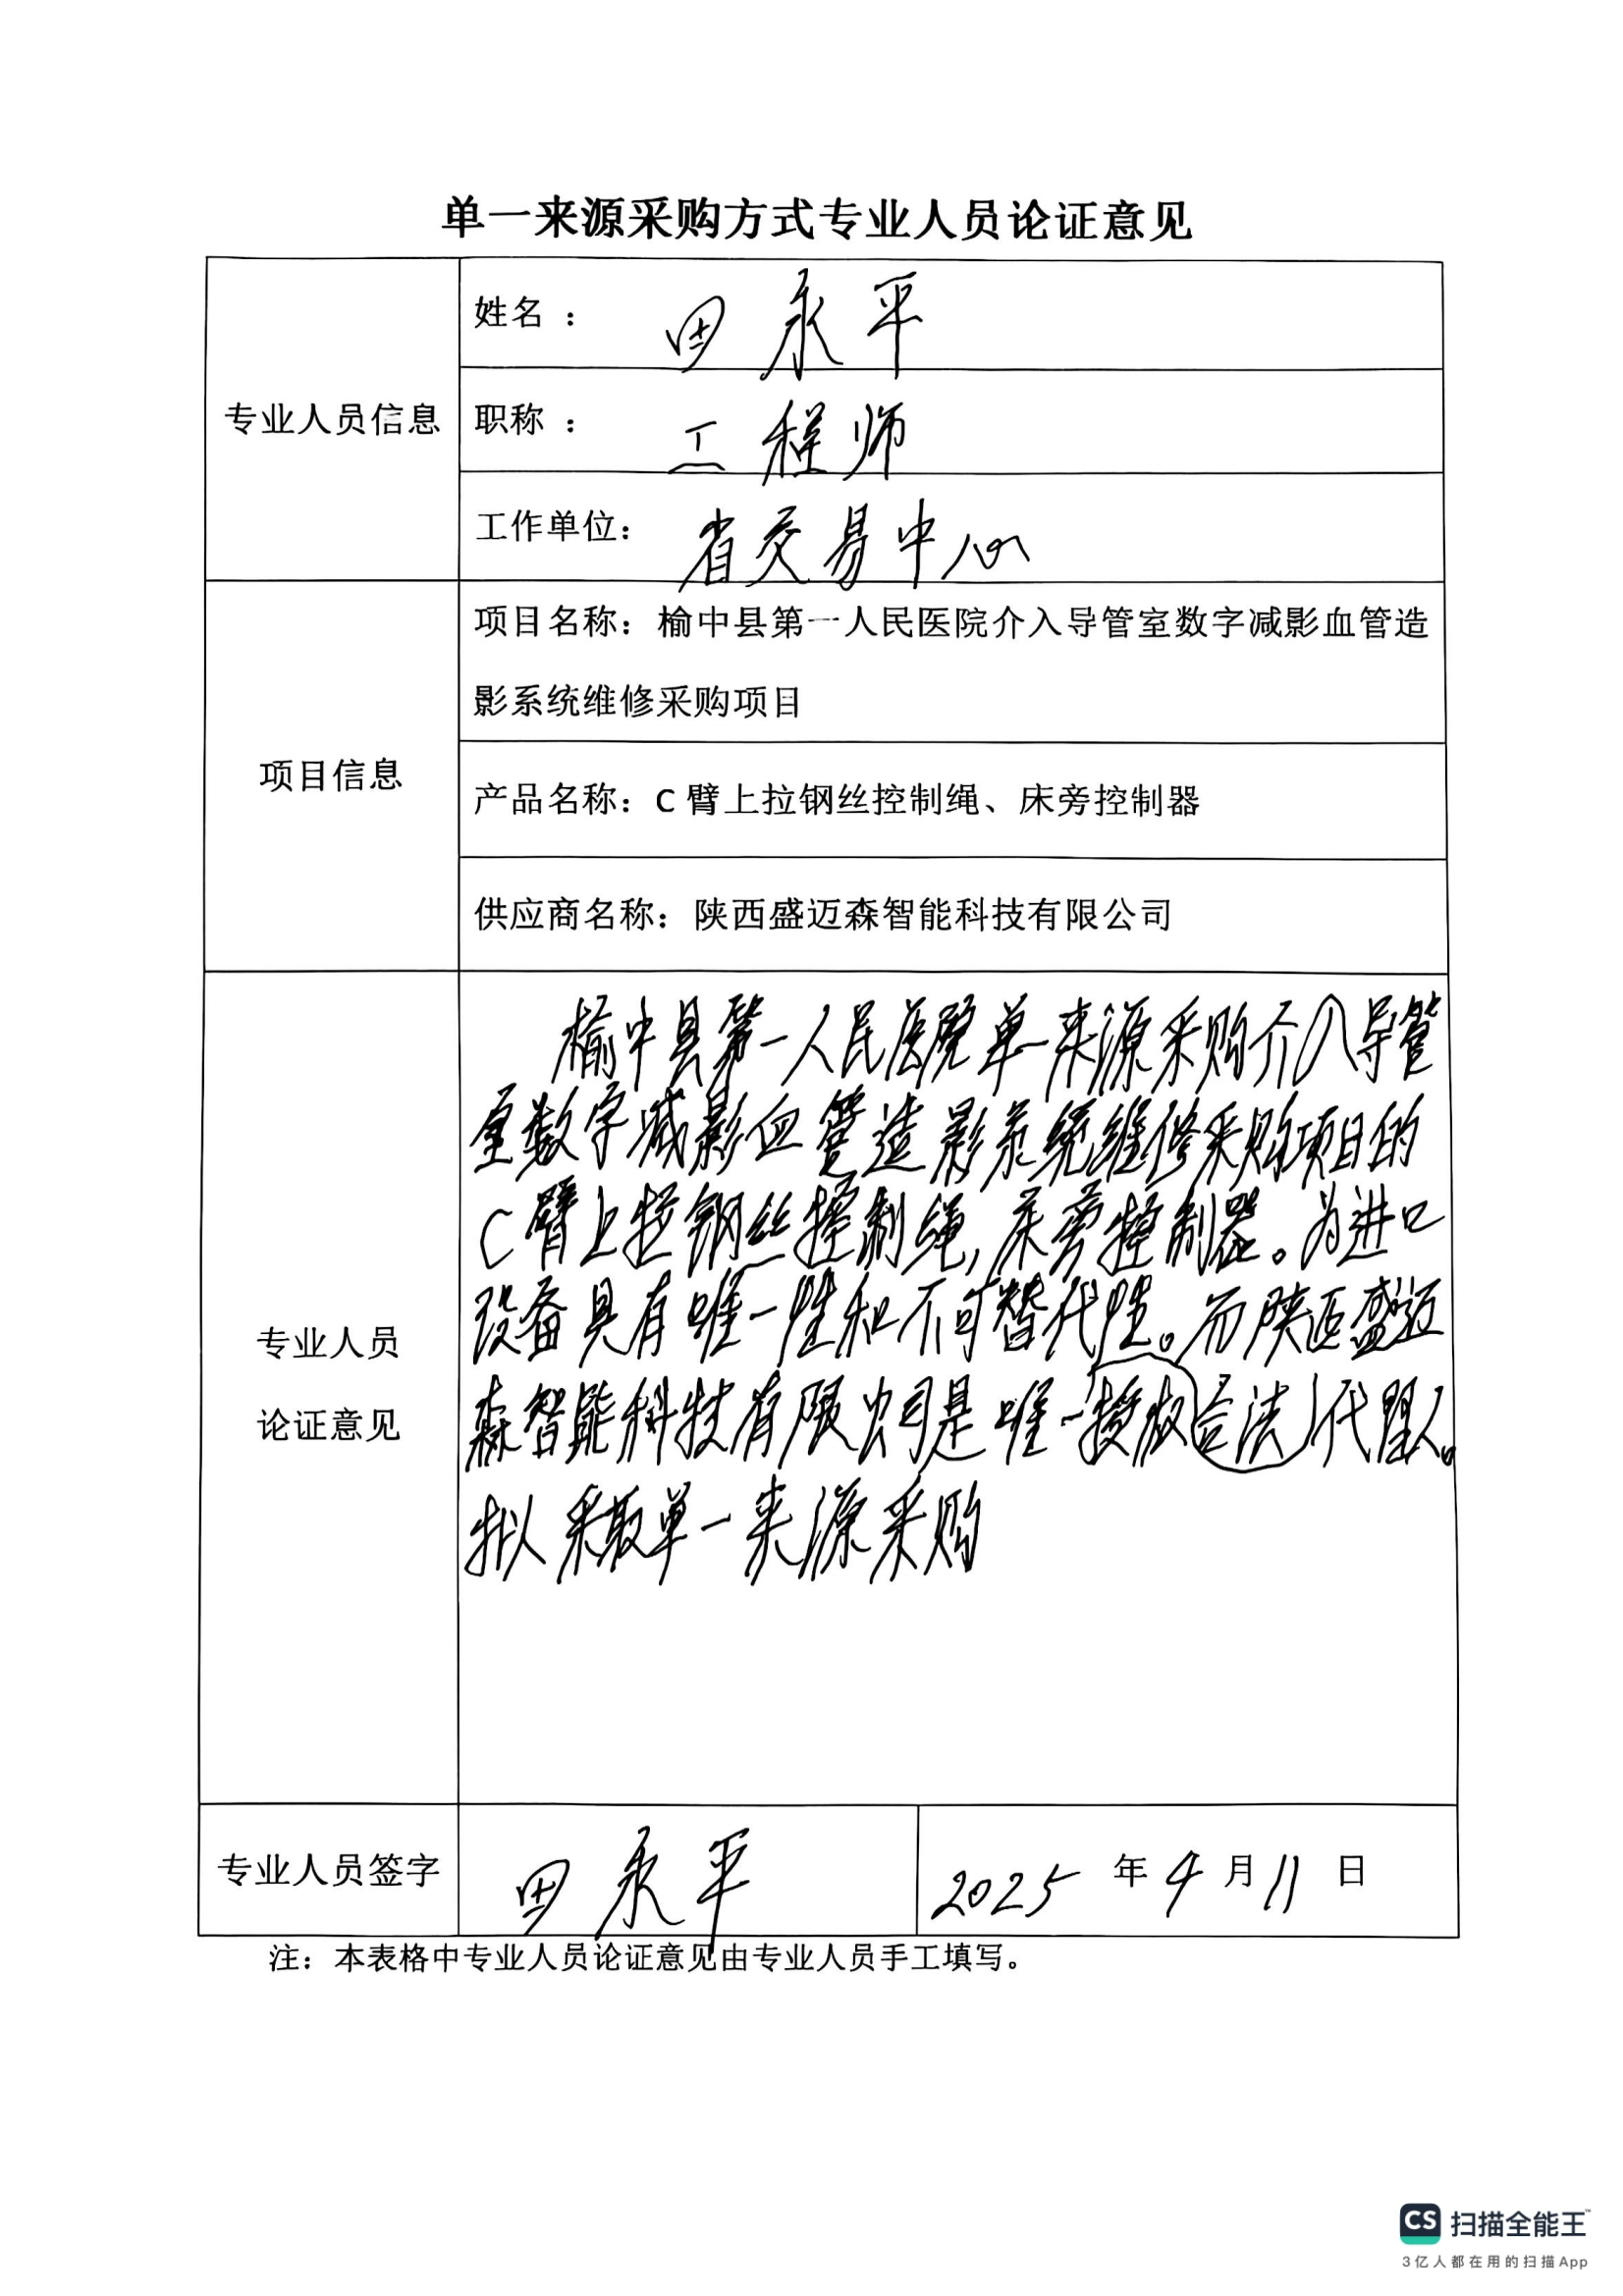 单一来源采购方式专业人员论证意见
专业人员信息
姓名：田永平
职称：工程师
工作单位：省交易中心
项目信息
项目名称：榆中县第一人民医院介入导管室数字减影血管造
影系统维修采购项目
产品名称：C 臂上拉钢丝控制绳、床旁控制器
供应商名称：陕西盛迈森智能科技有限公司
专业人员
论证意见
榆中县第一人民医院单一来源采购介入导管
室数字减影血管造影系统维修采购项目的
C臂上拉钢丝控制绳,床旁控制器。为进口
设备具有唯一性和不可替代性。而陕西盛迈
森智能科技有限公司是唯一授权合法代理人。
拟采取单一来源采购
专业人员签字
田永平
2025 年 4 月 11 日
注：本表格中专业人员论证意见由专业人员手工填写。
CS 扫描全能王™
3亿人都在用的扫描App